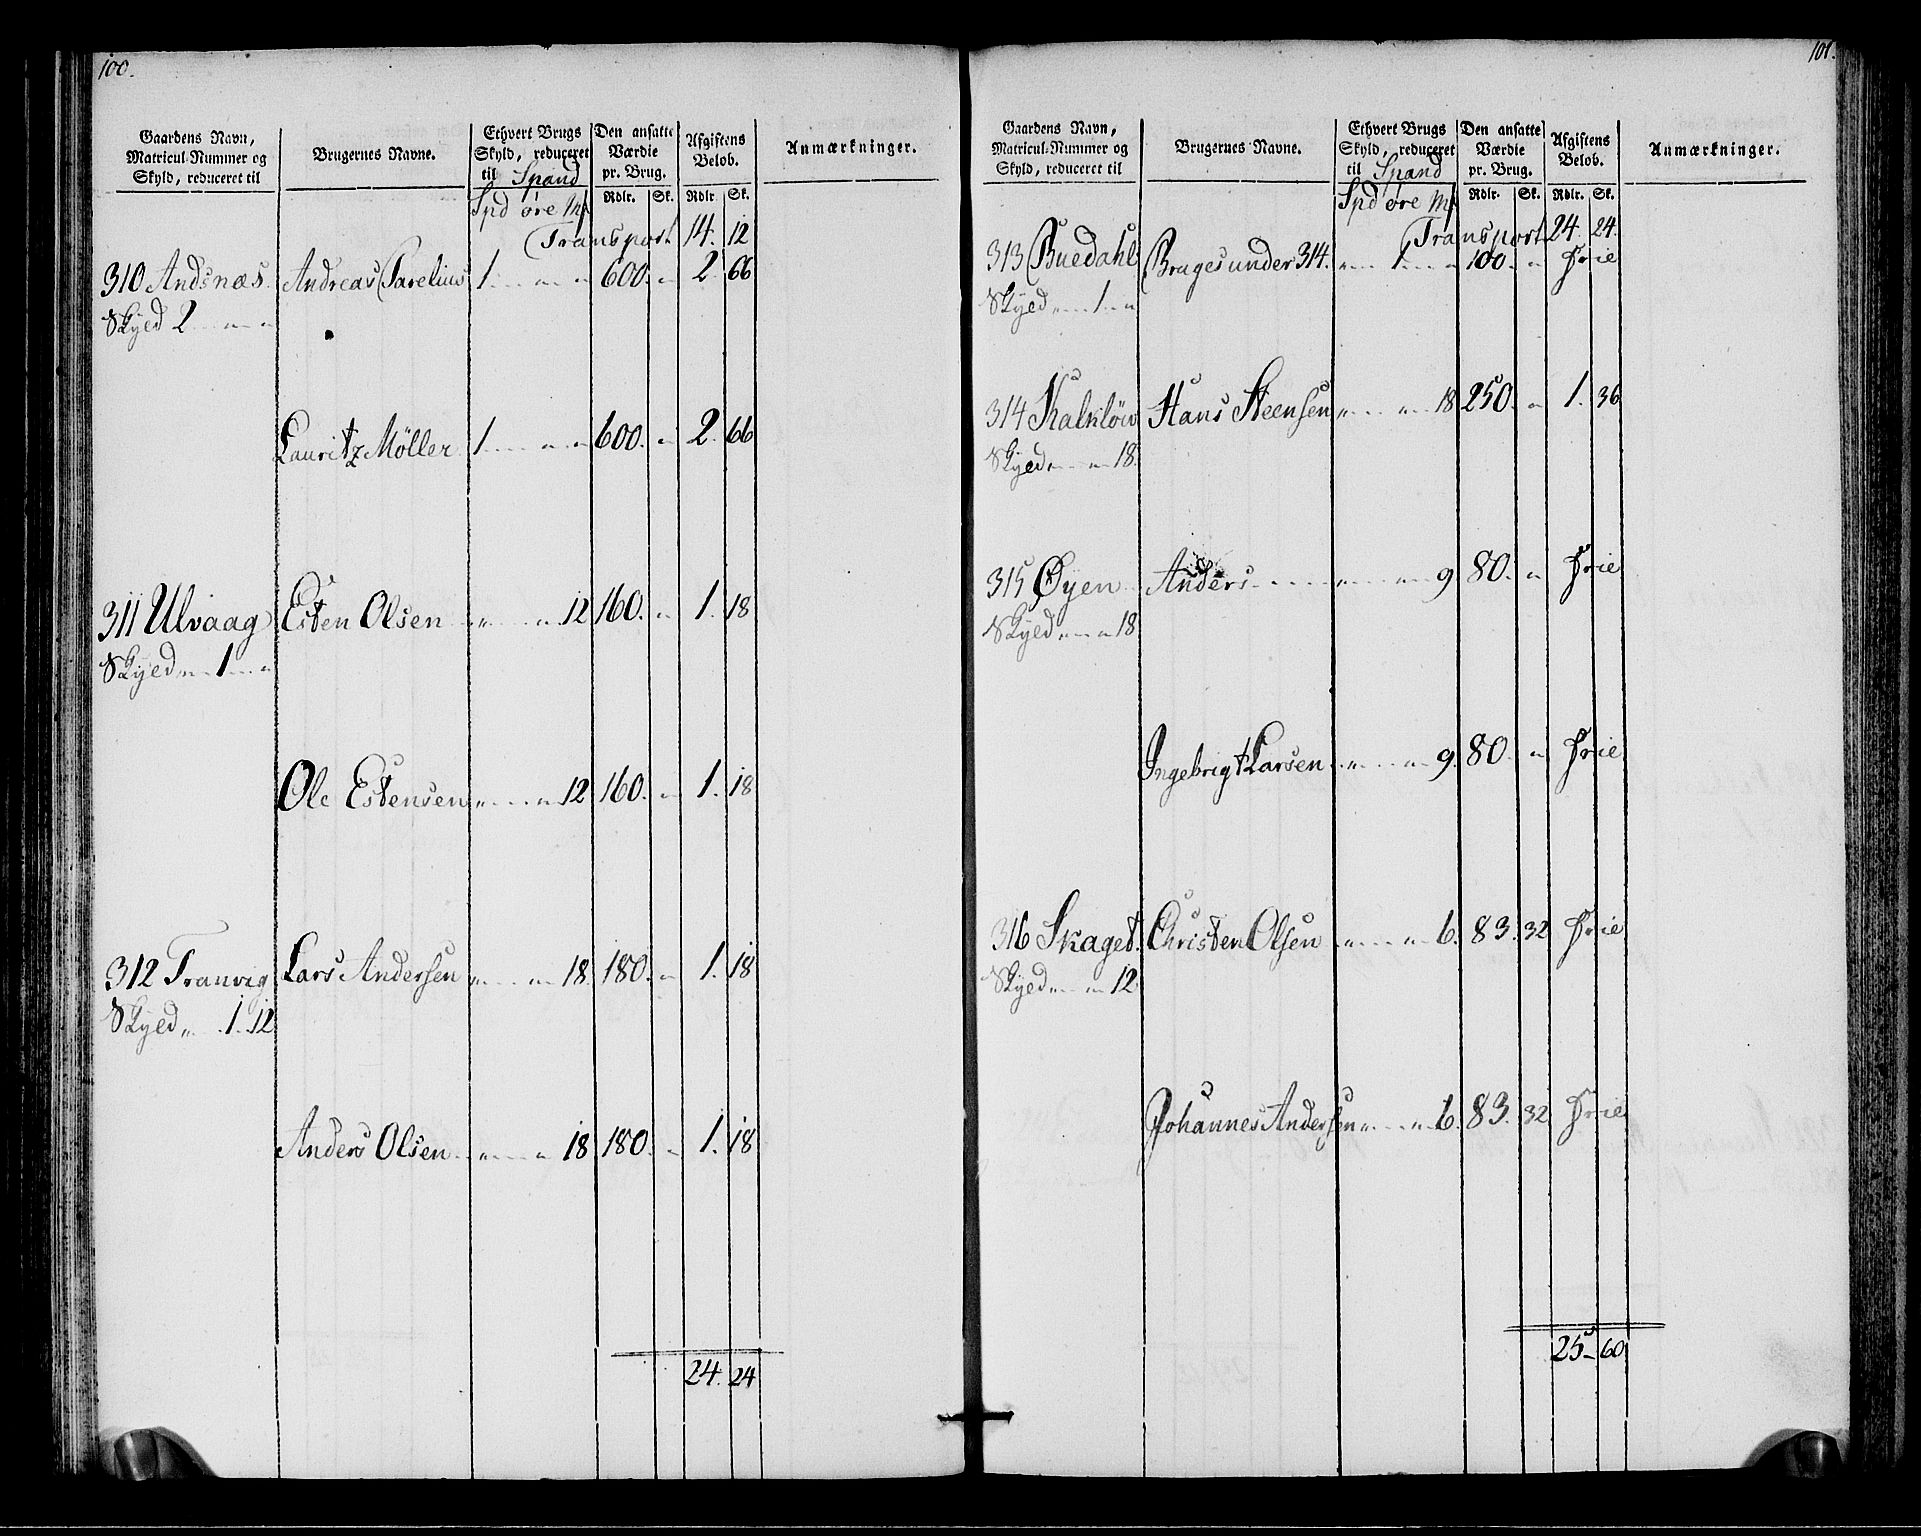 100.
Gaardens Navn, Matricul-Nummer og Skyld, reduceret til | Brugernes Navne. | Ethvert Brugs Skyld, reduceret til Spand | Den ansatte Værdie pr. Brug. | Afgiftens Belob. | Anmærkninger.
Spd øre Mf | Rdlr. Sk. | Rdlr. Sk.
Transport 14. 12
310 Andsnæs. Andreas Parelius 1 " " 600. " 2. 66
Skyed 2 " "
Lauritz Möller 1 " " 600. " 2. 66
311 Ulvaag Esten Olsen " " 12 160. " 1. 18
Skyed " 1 "
Ole Estensen " " 12 160. " 1. 18
312 Tranvig Lars Andersen " " 18. 180. " 1. 18
Skyed " 1. 12
Anders Olsen " " 18 180. " 1. 18
24. 24
101.
Gaardens Navn, Matricul-Nummer og Skyld, reduceret til | Brugernes Navne. | Ethvert Brugs Skyld, reduceret til Spand | Den ansatte Værdie pr. Brug. | Afgiftens Belob. | Anmærkninger.
Spd øre Mf | Rdlr. Sk. | Rdlr. Sk.
Transport 24. 24.
313 Buedahl Bruges under 314. " 1 " 100. " frie
Skyed " 1 "
314 Kalklöw Hans Steensen " " 18 250. " 1. 36
Skyed " " 18.
315 Øyen Anders " " 9. 80. " frie
Skyed " " 18
Ingebrigt Larsen " " 9. 80. " frie
316 Skaget. Christen Olsen " " 6. 83. 32 frie
Skyed " " 12
Johannes Andersen " " 6. 83. 32 frie
25 60